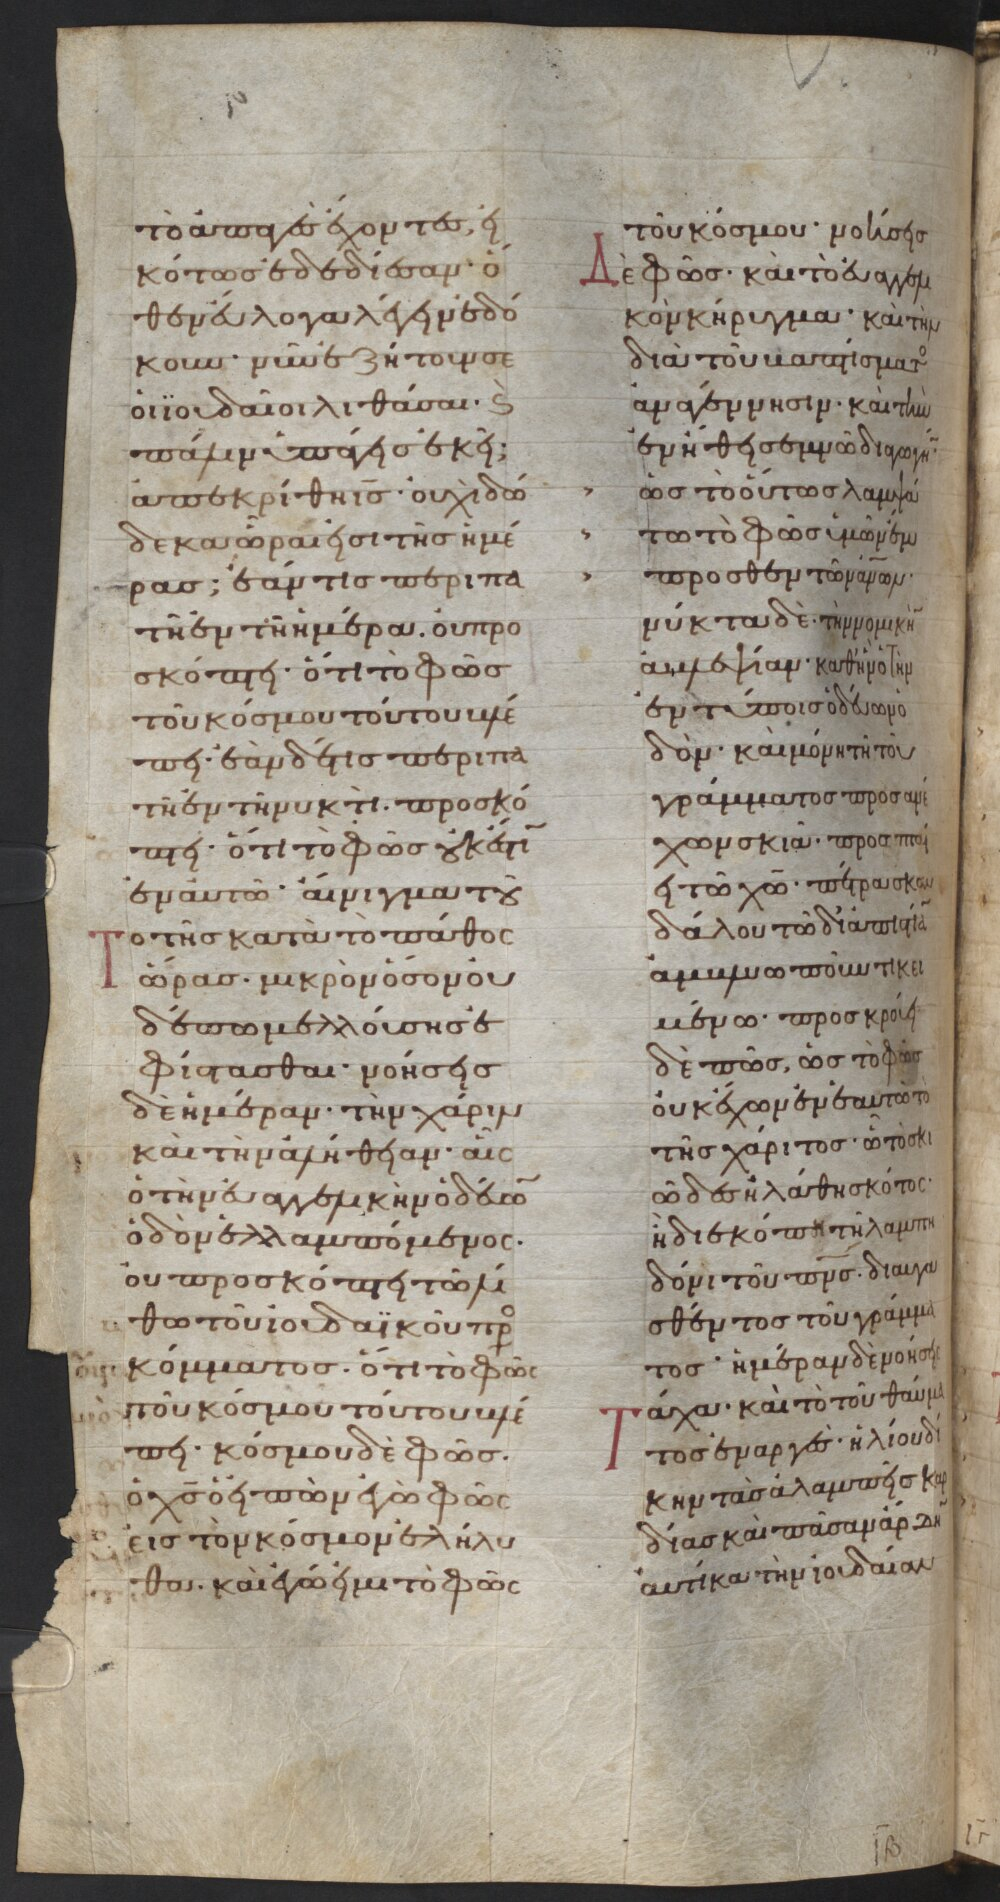 τὸ ἀπαγὲς ἔχοντες, εἰ
κότως ἐδεδίεσαν· ὅ
θεν εὐλογα λέγειν ἐδό
κουν· νῦν ἐζήτουν σε
οἱ ϊουδαῖοι λιθάσαι· ϗ
πάλιν ὑπάγεις ἐκεῖ;
ἀπεκρίθη ις̅· οὐχὶ δώ
δεκα ὧραι εἰσι τῆς ἡμέ
ρας; ἐάν τις περιπα
τῆ ἐν τῆ ἡμέρα. οὐ προ
σκόπτει· ὅτι τὸ φῶς
τοῦ κόσμου τούτου βλέ
πει· ἐὰν δέ τις περιπα
τῆ ἐν τῆ νυκτὶ. προσκό
πτει· ὅτι τὸ φῶς οὐκ ἔστι
ἐν αὐτῶ· αἴνιγμα τοῦ
Το τῆς κατὰ τὸ πάθος
ὥρας· μικρὸν ὅσον οὐ
δέπω μελλούσης ἐ
φίστασθαι· νοήσεις
δὲ ἡμέραν· τὴν χάριν
καὶ τὴν ἀλήθειαν· αἷς
ὁ τὴν εὐαγγελικὴν ὁδεύων
ὁδὸν ἐλλαμπόμενος·
οὐ προσκόπτει τῶ λί
θω τοῦ ἰουδαϊκοῦ προ
κόμματος· ὅτι τὸ φῶς
τοῦ κόσμου τούτου βλέ
πει· κόσμου δὲ φῶς·
ὁ χς̅ ὁ εἰπὼν ἐγὼ φῶς
εἰς τὸν κόσμον ἐλήλυ
θα· καὶ ἐγώ εἰμι τὸ φῶς
τοῦ κόσμου· νοήσεις
Δὲ φῶς· καὶ τὸ εὐαγγελι
κὸν κήρυγμα· καὶ τὴν
διὰ τοῦ βαπτίσματος
ἀναγέννησιν· καὶ τὴν
ἐν ἤθει σεμνῶ διαγωγήν·
ὡς τὸ οὕτως λαμψά
τω τὸ φῶς ὑμῶν ἔμ
προσθεν τῶν ἀν̅ων·
νύκτα δὲ· τὴν νομικὴν
ἀμβλυψίαν· καθ' ἣν ὁ τὴν
ἐν τύποις ὁδεύων ὁ
δὸν· καὶ μόνη τῆ τοῦ
γράμματος προσανέ
χων σκιᾶ· προσπταί
ει τῶ χω̅· πέτρα σκαν
δάλου τῶ δι' ἀπιστίαν
ἀμβλυωποῦντι κει
μένω· προσκρούει
δὲ πῶς, ὡς τὸ φῶς
οὐκ ἔχων ἐν ἑαυτῶ τὸ
τῆς χάριτος· ὧ τὸ σκι
ῶδες ἠλάθη σκότος·
ἡ δισκόπτη τῆ λαμπη
δόνι τοῦ πνς̅· διαυγα
σθέντος τοῦ γράμμα
τος· ἡμέραν δὲ νοήσεις
Τάχα· καὶ τὸ τοῦ θαύμα
τος ἐναργὲς· ἡλίου δί
κην τὰς ἀλαμπεῖς καρ
δίας καὶ πᾶσαν ἄρδην
αὐτίκα τὴν ἰουδαίαν
ιβ
ιγ